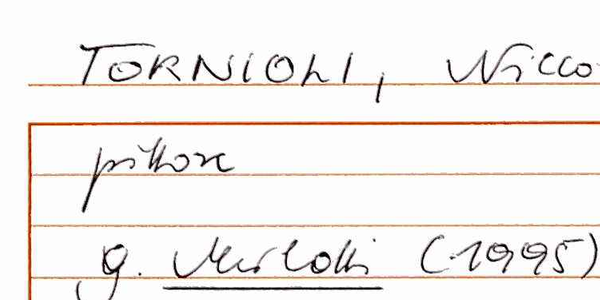 TORNIOLI, Nicco
pittore
g. Merlotti (1995)